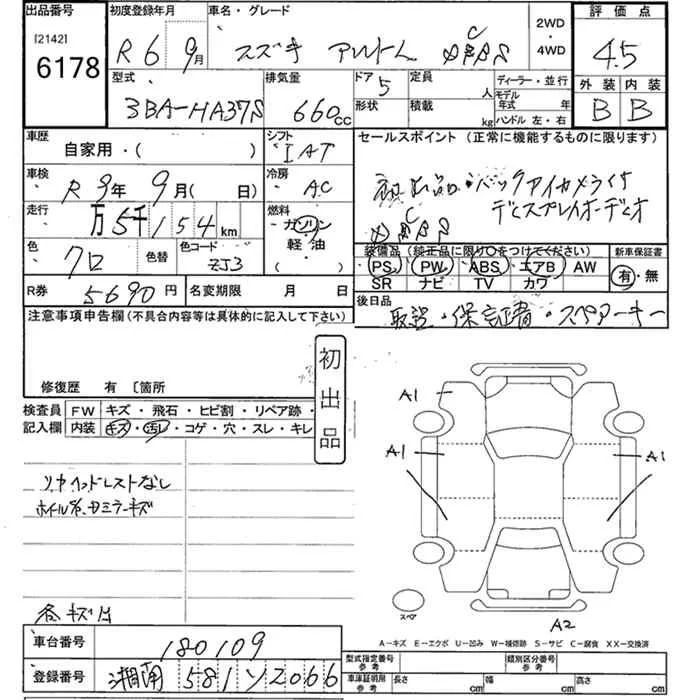 出品番号
[2142]
6178
初度登録年月
R 6 9月
車名・グレード
スズキ アルト
2WD
・
4WD
評価点
4.5
外装 内装
B B
型式
3BA-HA37S
排気量
660cc
ドア
5
形状
定員
人
積載
kg
ディーラー・並行
モデル
年式 年
ハンドル 左・右
車歴
自家用・( )
シフト
IAT
車検
R 9年 9月( 日)
冷房
AC
走行
万 5千 154 km
燃料
ガソリン
軽油
( )
色
クロ
色替
色コード
ZJ3
R券
5690円
名変期限 月 日
セールスポイント (正常に機能するものに限ります)
初出品・バックアイカメラ付
ディスプレイオーディオ
装備品 (純正品に限り〇をつけてください)
PS PW ABS エアB AW
SR ナビ TV カワ
新車保証書
有・無
後日品
取説・保証書・スペアーキー
注意事項申告欄(不具合内容等は具体的に記入して下さい)
修復歴 有 〔箇所
初出品
検査員
記入欄
FW キズ・飛石・ヒビ割・リペア跡・
内装 キズ・汚レ・コゲ・穴・スレ・キレ
リヤヘッドレストなし
各キズ凹
A1
A1
A1
A2
スペア
A－キズ E－エクボ U－凹み W－補修跡 S－サビ C－腐食 XX－交換済
車台番号
180109
登録番号
湘南 581 ソ 2066
型式指定番号
参考
類別区分番号
参考
車庫証明用
参考
長さ cm
幅 cm
高さ cm